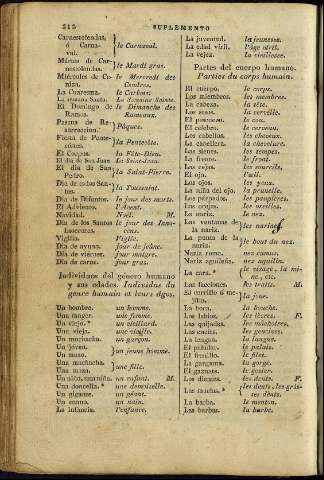 212 SUPLEMENTO
Carnestolendas,
ó Carna-
val. } le Carnaval.
Mártes de Car-
nestolendas. } le Mardi gras.
Miércoles de Ce- le Mercredi des
niza. Cendres.
La Cuaresma. le Carême.
La semana Santa. La Semaine Sainte.
El Domingo de le Dimanche des
Ramos. Rameaux.
Pascua de Re-
surreccion. } Pâques.
Pascua de Pente-
costes. } la Pentecôte.
El Corpus. la Fête-Dieu.
El dia de San Juan la Saint-Jean.
El dia de San
Pedro. } la Saint-Pierre.
Dia de todos San-
tos. } la Toussaint.
Dia de Difuntos. le jour des morts.
El Adviento. l'Avent.
Navidad. Noël. M.
Dia de los Santos le jour des Inno-
Inocentes. cens.
Vigilia. Vigile.
Dia de ayuno. jour de jeûne.
Dia de viernes. jour maigre.
Dia de carne. jour gras.
Individuos del género humano
y sus edades. Individus du
genre humain et leurs âges.
Un hombre. un homme.
Una muger. une femme.
Un viejo.* un vieillard.
Una vieja.* une vieille.
Un muchacho. un garçon.
Un jóven.
Un mozo. } un jeune homme.
Una muchacha.
Una moza. } une fille.
Un niño, una niña. un enfant. M.
Una doncella.* une demoiselle.
Un gigante. un géant.
Un enano. un nain.
La infancia. l'enfance.
La juventud. la jeunesse.
La edad viril. l'âge viril.
La vejez. la vieillesse.
Partes del cuerpo humano.
Parties du corps humain.
El cuerpo. le corps.
Los miembros. les membres.
La cabeza. la tête.
Los sesos. la cervelle.
El pescuezo. le cou.
El celebro. le cerveau.
Los cabellos. les cheveux.
La cabellera. la chevelure.
Las sienes. les tempes.
La frente. le front.
Las cejas. les sourcils.
El ojo. l'œil.
Los ojos. les yeux.
La niña del ojo. la prunelle.
Los párpados. les paupières.
Las orejas. les oreilles.
La nariz. le nez.
Las ventanas de
la nariz. } les narines.
La punta de la
nariz. } le bout du nez.
Nariz roma. nez camus.
Nariz aguileña. nez aquilin.
La cara.* { le visage, la mi-
ne, etc.
Las facciones. les traits. M.
El carrillo ó me-
jilla. } la joue.
La boca. la bouche.
Los labios. les lèvres. F.
Las quijadas. les mâchoires.
Las encías. les gencives.
La lengua. la langue.
El paladar. le palais.
El frenillo. le filet.
La garganta. la gorge.
El gaznate. le gosier.
Los dientes. les dents. F.
Las muelas.* { les dents, les gros-
ses dents.
La barba. le menton.
Las barbas. la barbe.